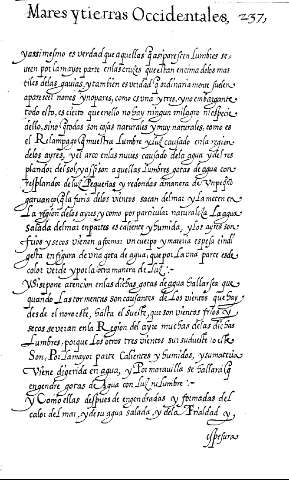 Mares y tierras Occidentales. 237,
y assi mesmo es verdad que aquellas q̃ asi paresçen Lumbres se
veen por la mayor parte en las cruzes que estan encima delos mas
tiles delas gauias, y tambien es verdad q̃ ordinariamente suelen
aparesçer nones y no pares, como es vna y tres, y no embargante
todo esto, es cierto que en ello no hay ningun milagro ni espeçie
dello, sino q̃ todas son cosas naturales y muy naturales, como es
el Relampago q̃ muestra Lumbre y luz causado en la region
delos ayres, y el arco en las nuues causado dela agua y del res
plandor del sol, y assi son aquellas Lumbres gotas de agua con
resplandor de luz Pequeñas y redondas a manera de Vn pe
garuanço q̃ la furia delos vientos sacan del mar y la meten en
La region delos ayres y como por particular naturaleza La agua
salada del mar en partes es caliente y humida, y los ayres son
frios y secos vienen a formar vn cuerpo y materia espesa
gesta en figura de vna gota de agua, que por La vna parte es de
color verde y por la otra manera de Luz.
Y si se pone atencion en las dichas gotas de agua hallarsea que
quando Las tormentas son causantes de Los vientos que hay
desde el noroeste, hasta el Sueste, que son vientos frios y
secos se veran en la Region del ayre muchas delas dichas
Lumbres, porque Los otros tres vientos sur sudueste oeste
Son, Por La mayor parte Calientes y humidos, y su materia
Viene digerida en agua, y Por marauilla se hallara q̃
engendre gotas de Agua con Luz ni Lumbre.
y Como ellas despues de engendradas y formadas del
calor del mar, y de su agua salada, y dela frialdad y
espesura